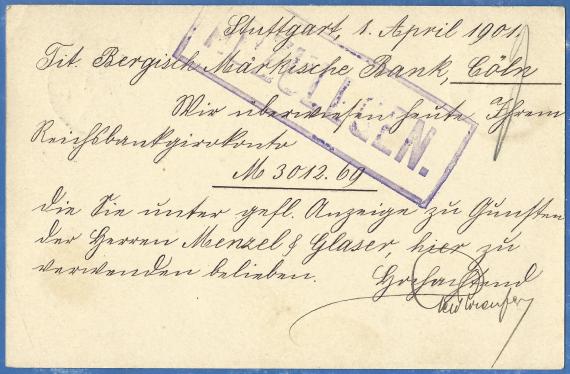 Stuttgart, 1. April 1901.
Tit. Bergisch Märkische Bank, Cöln
Wir überwiesen heute Ihrem
Reichsbankgirokonto
M 3012.69
die Sie unter gefl. Anzeige zu Gunsten
der Herren Menzel & Glaser, hier zu
verwenden belieben.
Hochachtend